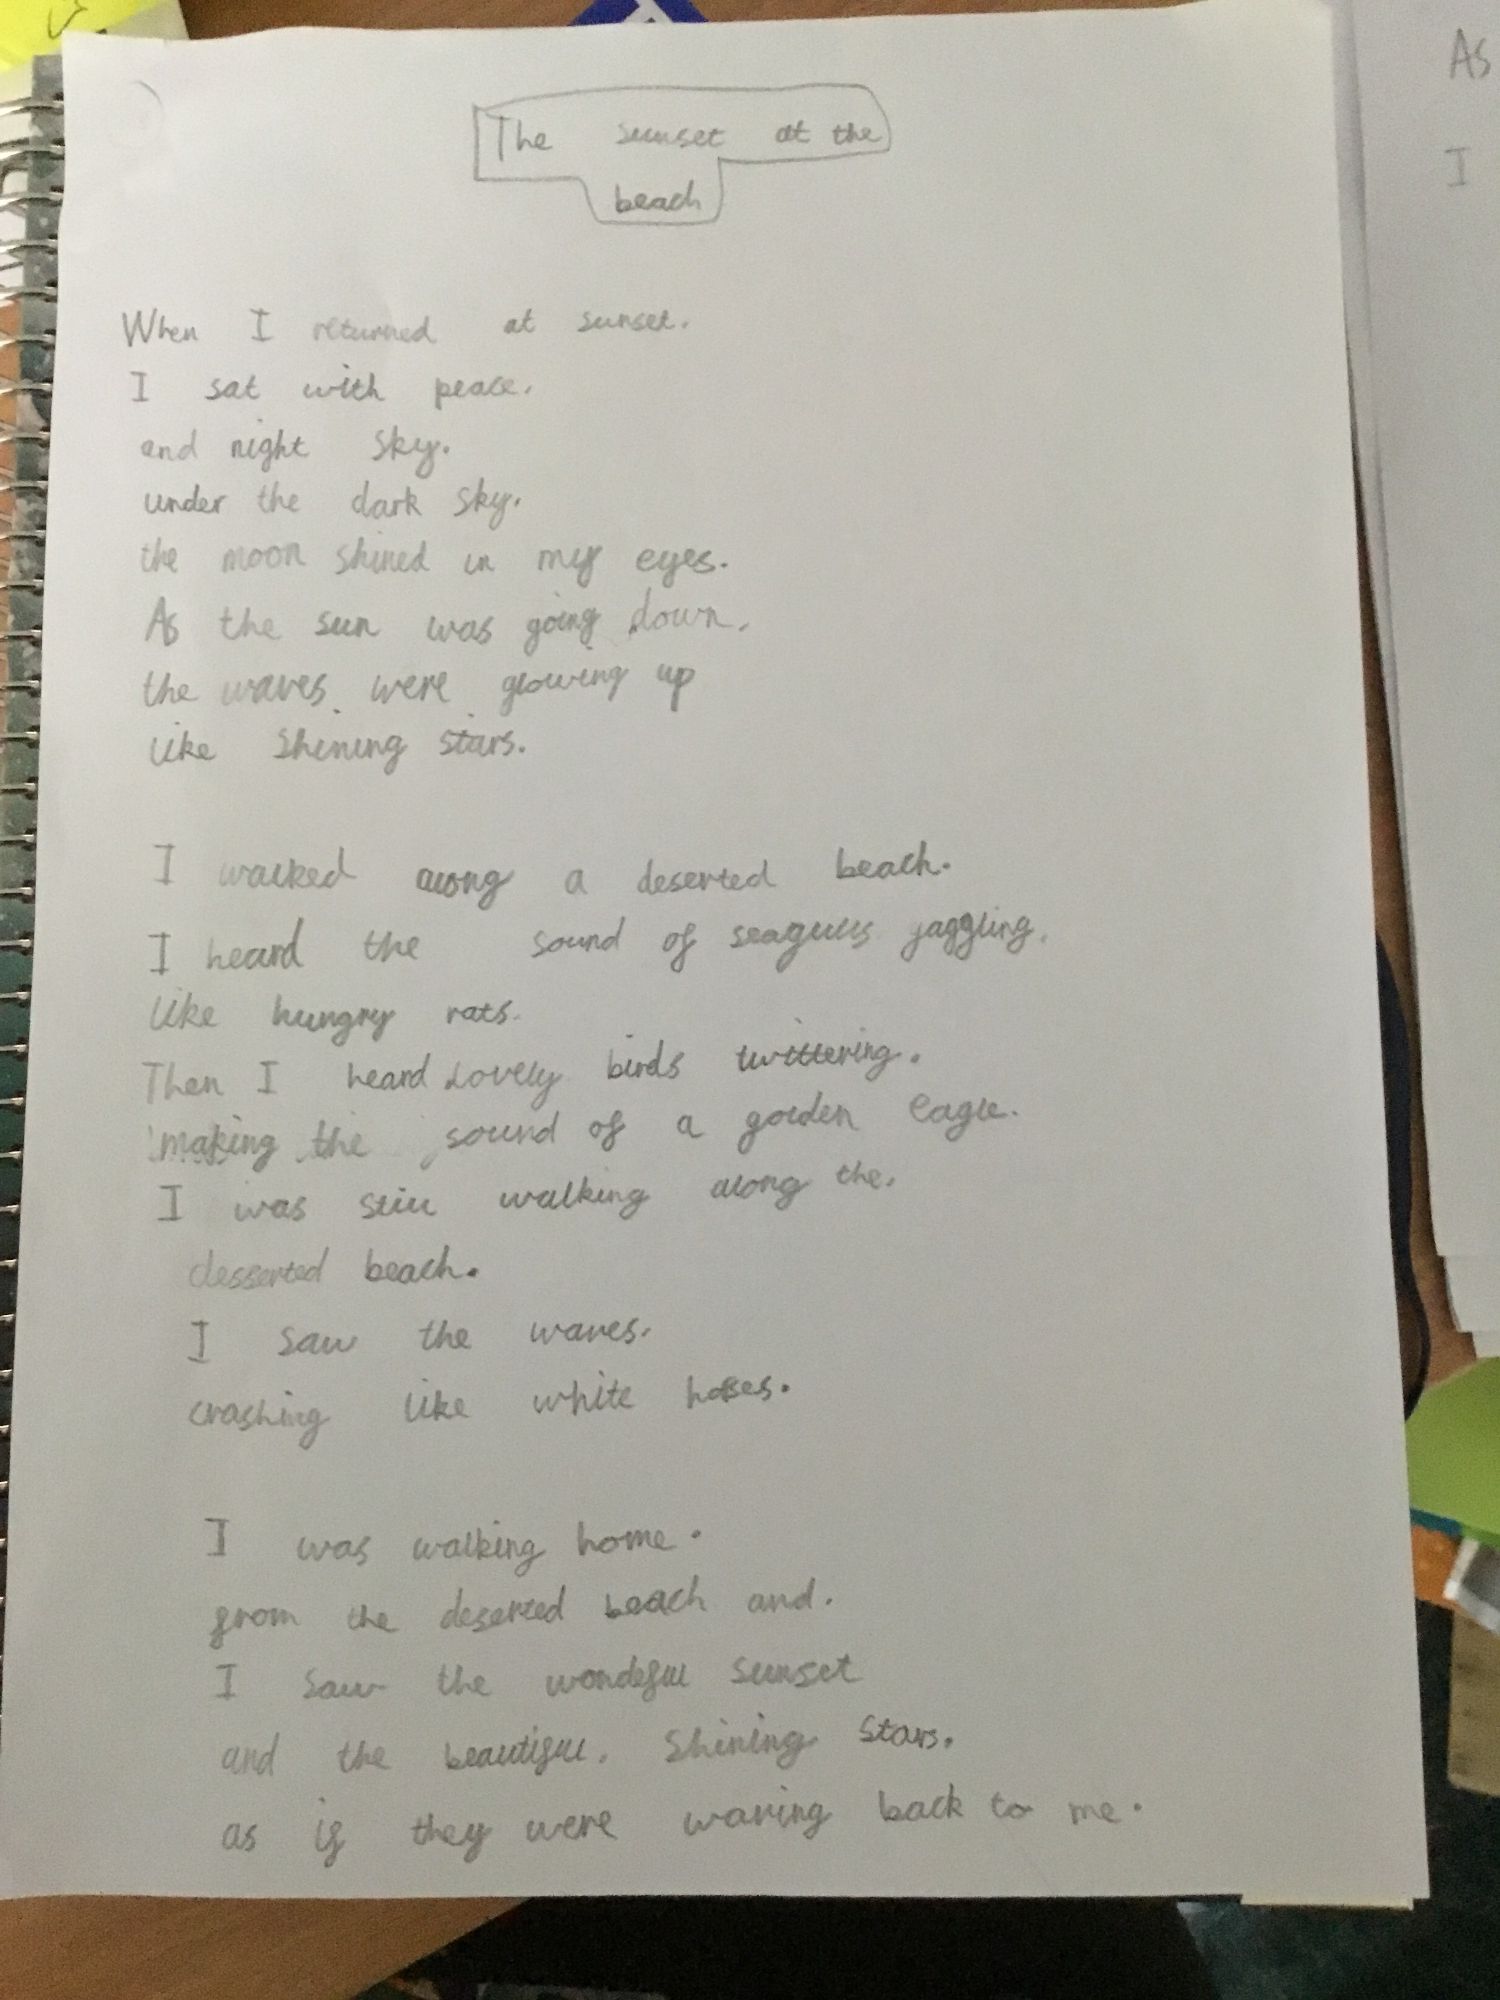 The sunset at the
beach
When I returned at sunset.
I sat with peace.
and night sky.
under the dark sky.
the moon shined in my eyes.
As the sun was going down.
the waves were glowing up
like shining stars.
I walked along a deserted beach.
I heard the sound of seagulls gaggling.
like hungry rats.
Then I heard Lovely birds twittering.
making the sound of a golden eagle.
I was still walking along the.
desserted beach.
I saw the waves.
crashing like white horses.
I was walking home.
from the deserted beach and.
I saw the wondeful sunset
and the beautiful. shining stars.
as if they were waving back to me.
As
I